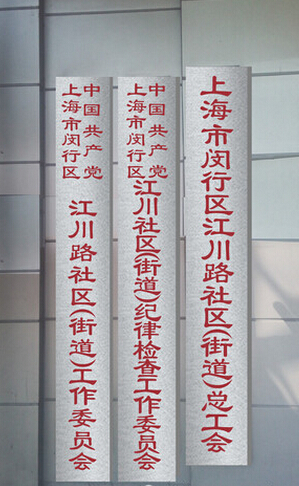 上海市闵行区江川路社区(街道)总工会
中国共产党
上海市闵行区
江川社区(街道)纪律检查工作委员会
中国共产党
上海市闵行区
江川路社区(街道)工作委员会